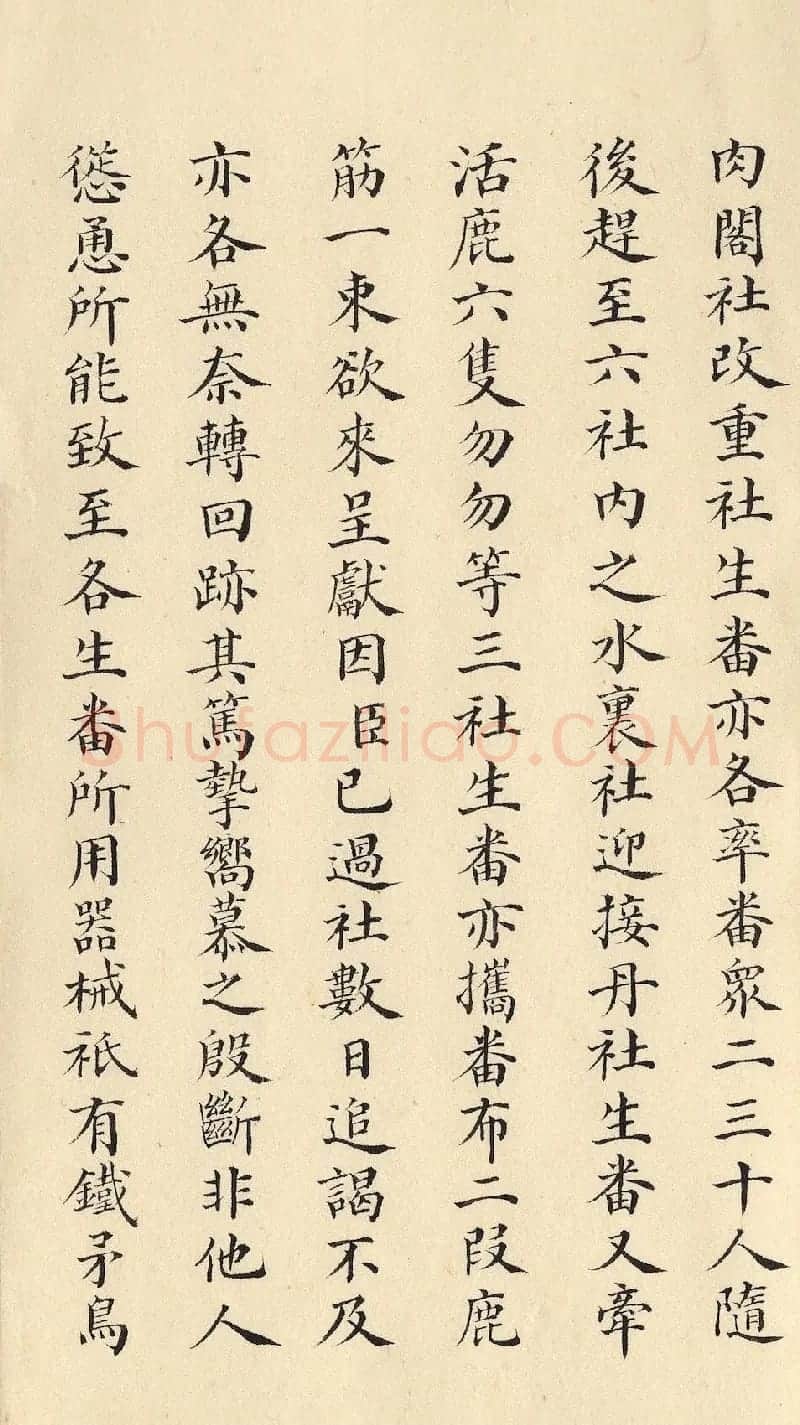 肉閣社改重社生番亦各率番眾二三十人隨
後趕至六社內之水裏社迎接丹社生番又牽
活鹿六隻勿勿等三社生番亦攜番布二段鹿
筋一束欲來呈獻因臣已過社數日追謁不及
亦各無奈轉回跡其篤摯嚮慕之殷斷非他人
慫恿所能致至各生番所用器械祇有鐵矛鳥
Shufaziliao.COM